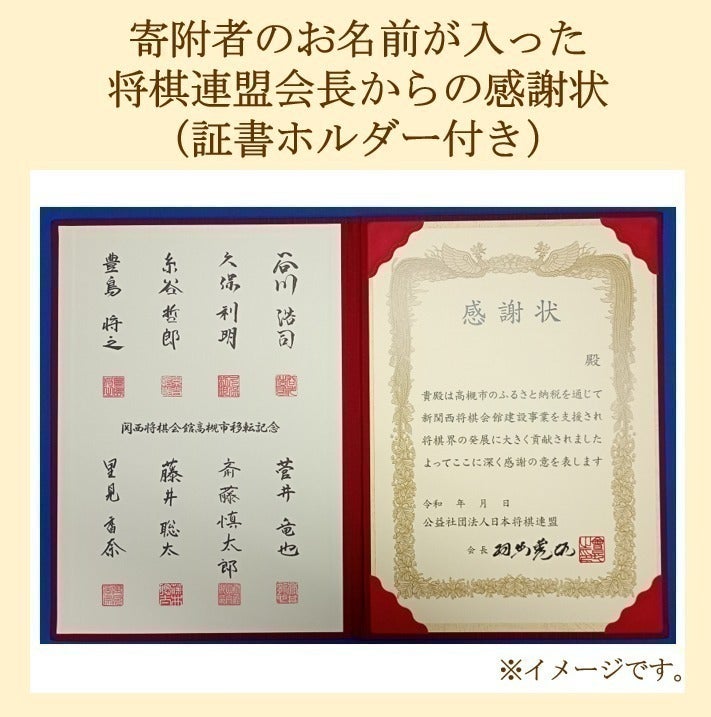 寄附者のお名前が入った
将棋連盟会長からの感謝状
（証書ホルダー付き）
谷川 浩司
久保 利明
糸谷 哲郎
豊島 将之
関西将棋会館高槻市移転記念
菅井 竜也
斎藤 慎太郎
藤井 聡太
里見 香奈
感謝状
殿
貴殿は高槻市のふるさと納税を通じて
新関西将棋会館建設事業を支援され
将棋界の発展に大きく貢献されました
よってここに深く感謝の意を表します
令和 年 月 日
公益社団法人日本将棋連盟
会長
※イメージです。